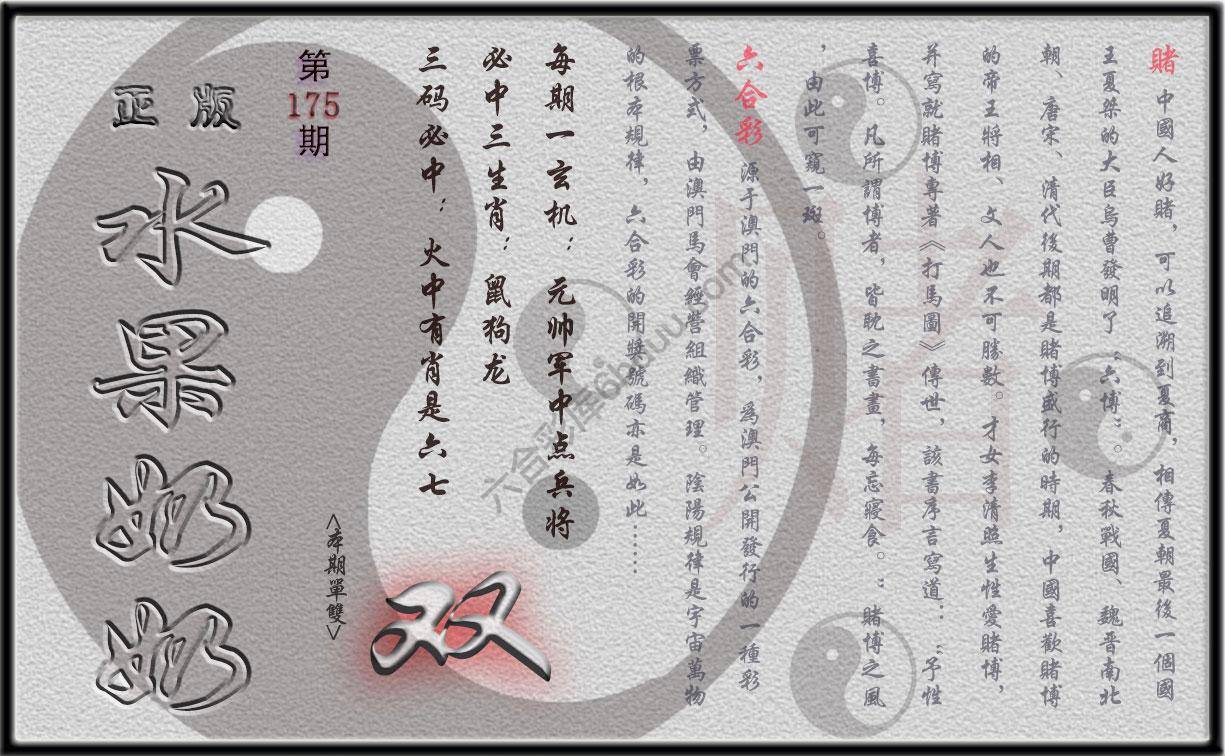 賭 中國人好賭，可以追溯到夏商，相傳夏朝最後一個國
王夏桀的大臣烏曹發明了“六博”。春秋戰國、魏晉南北
朝、唐宋、清代後期都是賭博盛行的時期，中國喜歡賭博
的帝王將相、文人也不可勝數。才女李清照生性愛賭博，
并寫就賭博專著《打馬圖》傳世，該書序言寫道：“予性
喜博。凡所謂博者，皆耽之晝畫，每忘寢食。”賭博之風
，由此可窺一斑。
六合彩 源于澳門的六合彩，爲澳門公開發行的一種彩
票方式，由澳門馬會經營組織管理。陰陽規律是宇宙萬物
的根本規律，六合彩的開獎號碼亦是如此……
每期一玄机：元帅军中点兵将
必中三生肖：鼠狗龙
三码必中：火中有肖是六七
<本期單雙>
双
第
175
期
正版
水果奶奶
賭
六合彩库6bauu.com